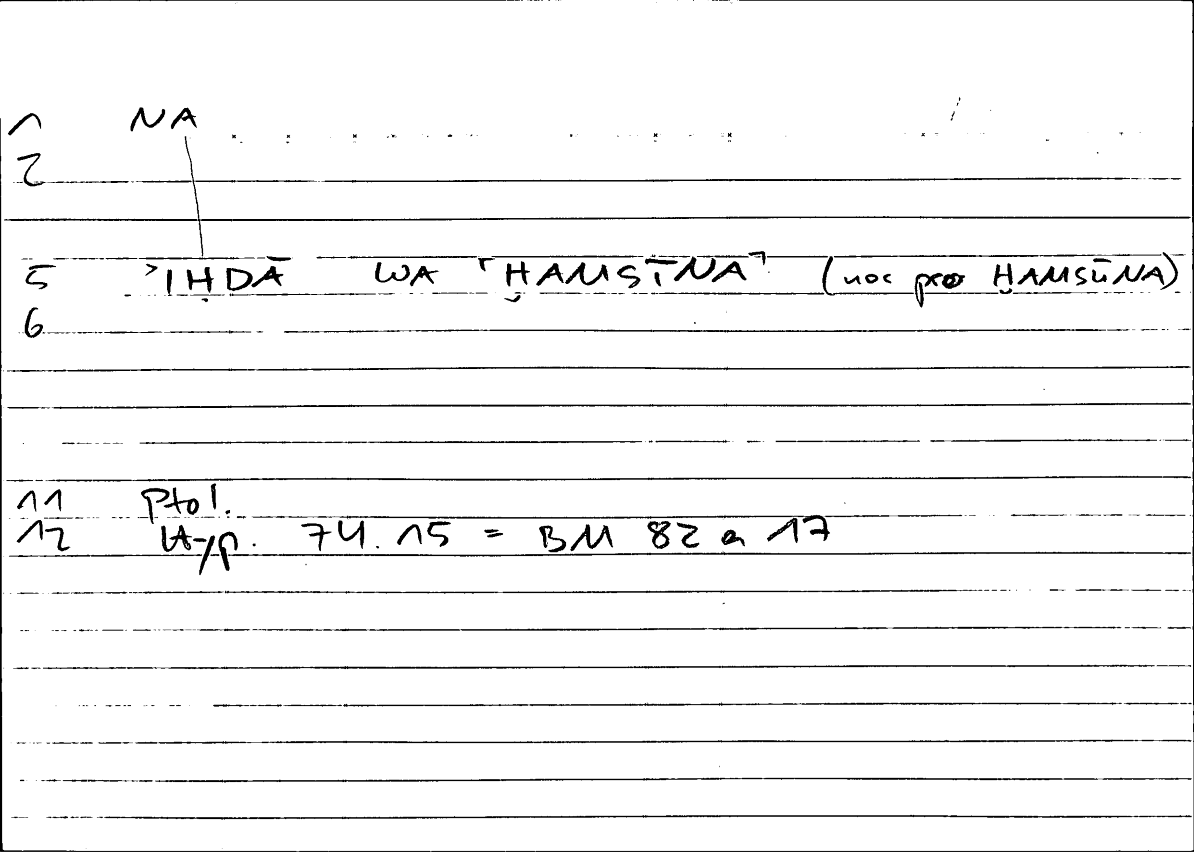 1 NA
2
5 ʾIḤDĀ WA ⸢ḪAMSĪNA⸣ (hoc pro ḪAMSŪNA)
6
11 Ptol.
12 Hyp. 74.15 = BM 82 a 17